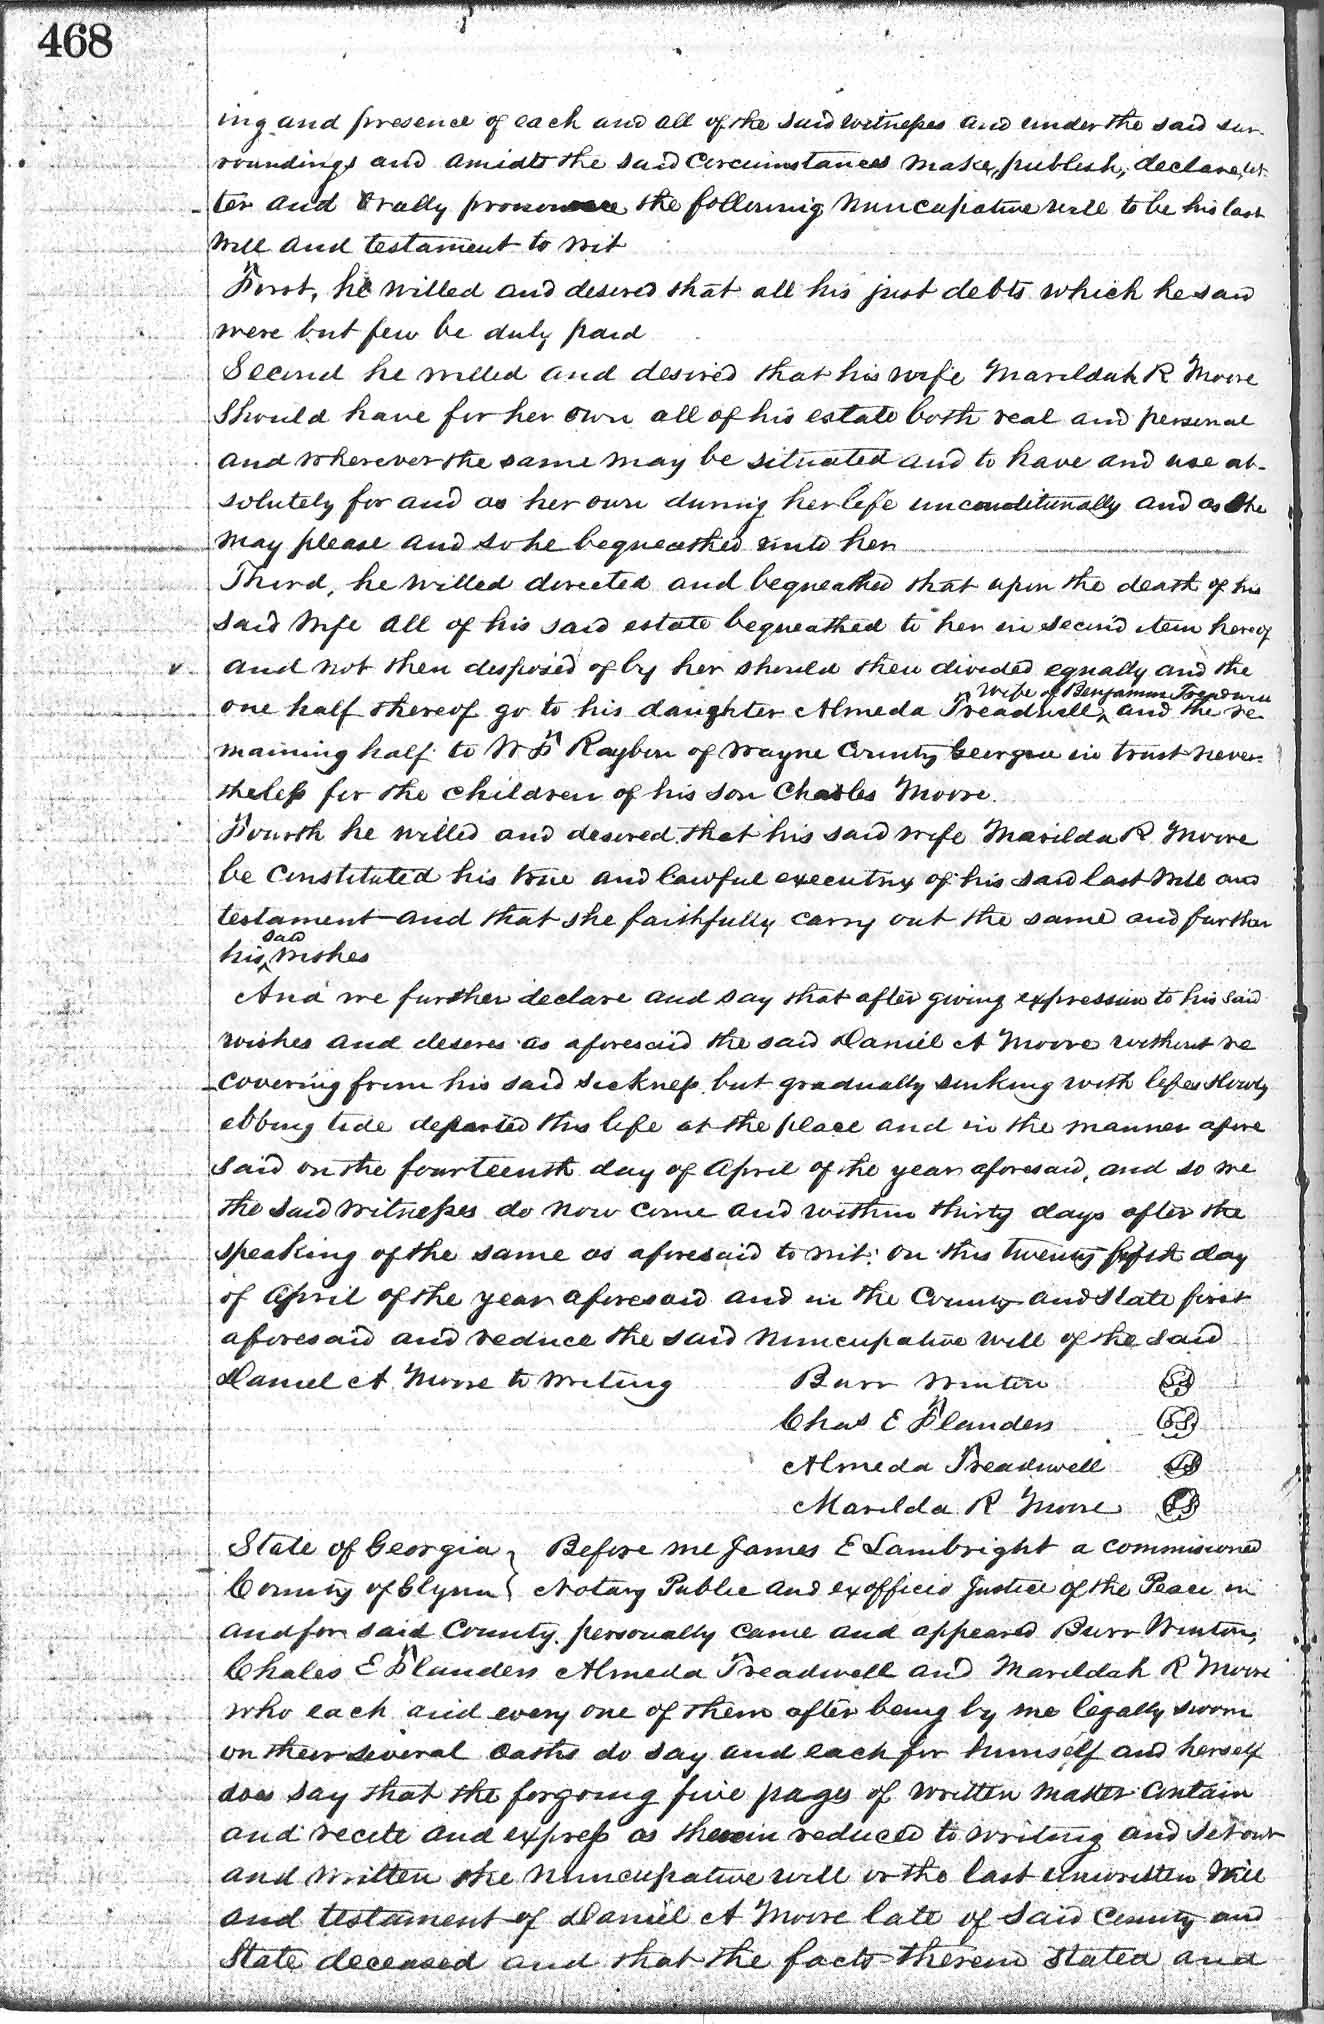 468
ing and presence of each and all of the said witnesses and under the said sur
roundings and amidst the said circumstances make, publish, declare, ut-
ter and Orally pronounce the following nuncupative will to be his last
will and testament to wit
First, he willed and desired that all his just debts which he said
were but few be duly paid
Second he willed and desired that his wife Marildah R Moore
should have for her own all of his estate both real and personal
and wherever the same may be situated and to have and use ab-
solutely for and as her own during her life unconditionally and as she
may please and so he bequeathed unto her
Third, he willed directed and bequeathed that upon the death of his
said wife all of his said estate bequeathed to her in second item hereof
and not then disposed of by her should then divided equally and the
one half thereof go to his daughter Almeda Treadwell ^ wife of Benjamin Treadwell and the re
maining half to W F Raybon of Wayne County Georgia in trust never-
theless for the children of his son Charles Moore.
Fourth he willed and desired that his said wife Marilda R Moore
be constituted his true and lawful executrix of his said last will and
testament and that she faithfully carry out the same and further
his ^ said wishes
And we further declare and say that after giving expression to his said
wishes and desires as aforesaid the said Daniel A Moore without re
covering from his said sickness but gradually sinking with lifes slowly
ebbing tide departed this life at the place and in the manner afore
said on the fourteenth day of April of the year aforesaid, and so we
the said witnesses do now come and within thirty days after the
speaking of the same as aforesaid to wit: on this twenty first day
of April of the year aforesaid and in the County and State first
aforesaid and reduce the said nuncupative will of the said
Daniel A Moore to writing Burr Winton LS
Chas E Flanders LS
Almeda Treadwell LS
Marilda R Moore LS
State of Georgia } Before me James E Lambright a commisioned
County of Glynn } Notary Public and ex officio Justice of the Peace in
and for said County. personally came and appeared Burr Winton,
Chales E Flanders Almeda Treadwell and Marildah R Moore
who each and every one of them after being by me legally sworn
on their several oaths do say and each for himself and herself
does say that the forgoing five pages of written matter contain
and recite and express as therein reduced to writing and set out
and written the nuncupative will or the last unwritten will
and testament of Daniel A Moore late of said County and
State deceased and that the facts therein stated and